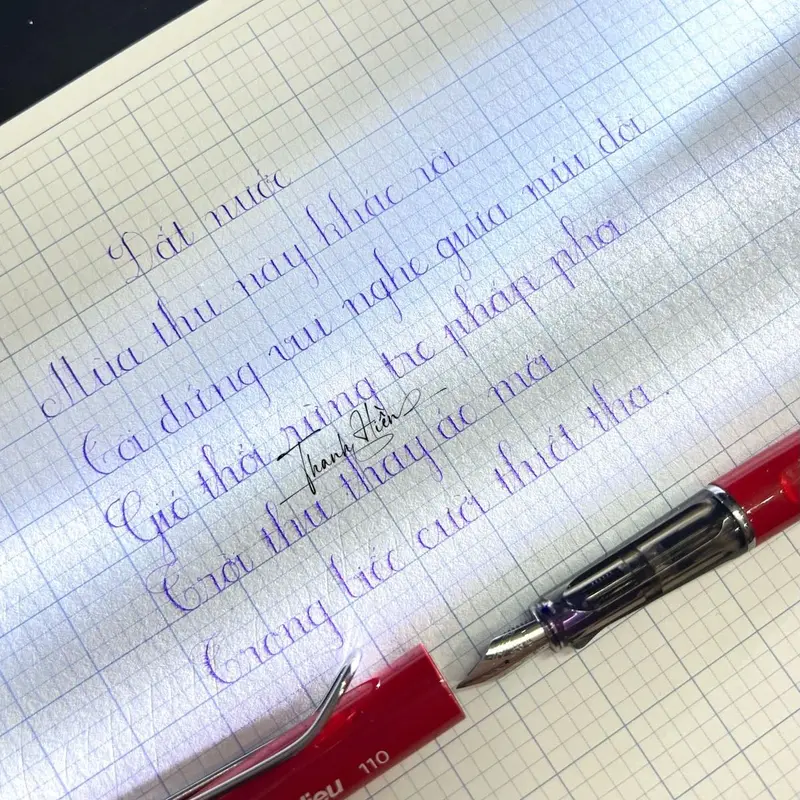 Đất nước
Mùa thu nay khác rồi
Tôi đứng vui nghe giữa núi đồi
Gió thổi rừng tre phấp phới
Trời thu thay áo mới
Trong biếc cười thiết tha.
Thanh Hiền
110